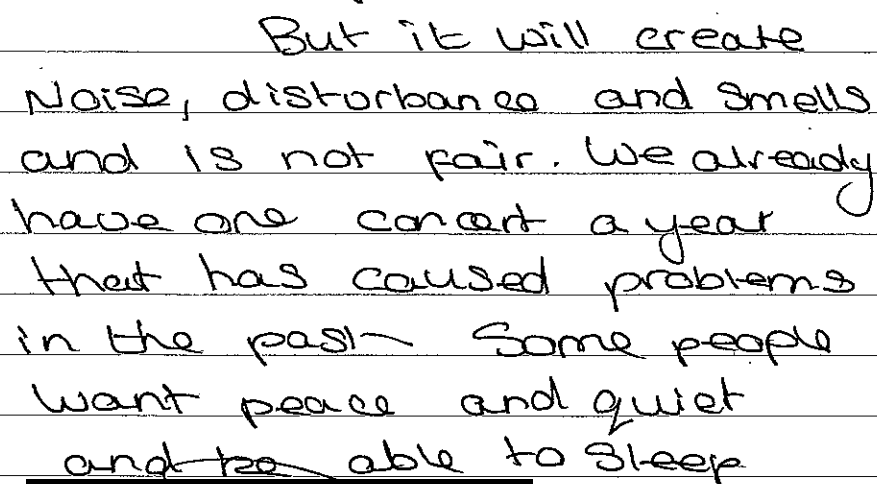 But it will create
Noise, disturbance and smells
and is not fair. We already
have one concert a year
that has caused problems
in the past Some people
want peace and quiet
and to able to sleep